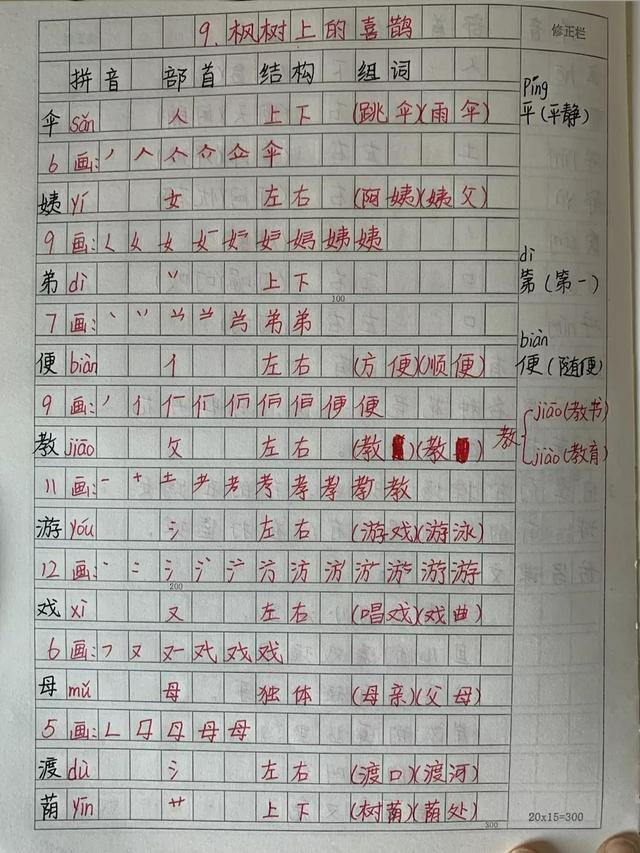 9.枫树上的喜鹊
修正栏
拼音 部首 结构 组词
伞 sǎn 人 上下 (跳伞)(雨伞)
6画: 丿 人 伞
姨 yí 女 左右 (阿姨)(姨父)
9画: 女 女 姨 姨
弟 dì 丷 上下
100
7画: 丶 丷 弟 弟
便 biàn 亻 左右 (方便)(顺便)
9画: 丿 亻 便 便
教 jiāo 攵 左右 (教)(教)
11画: 一 十 土 耂 考 孝 孝 教 教
游 yóu 氵 左右 (游戏)(游泳)
12画: 丶 氵 游 游
200
戏 xì 又 左右 (唱戏)(戏曲)
6画: 又 戏 戏 戏
母 mǔ 母 独体 (母亲)(父母)
5画: 母 母 母
渡 dù 氵 左右 (渡口)(渡河)
荫 yīn 艹 上下 (树荫)(荫处)
300
Píng
平(平静)
dì
第(第一)
biàn
便(随便)
教 jiāo(教书)
jiào(教育)
20x15=300